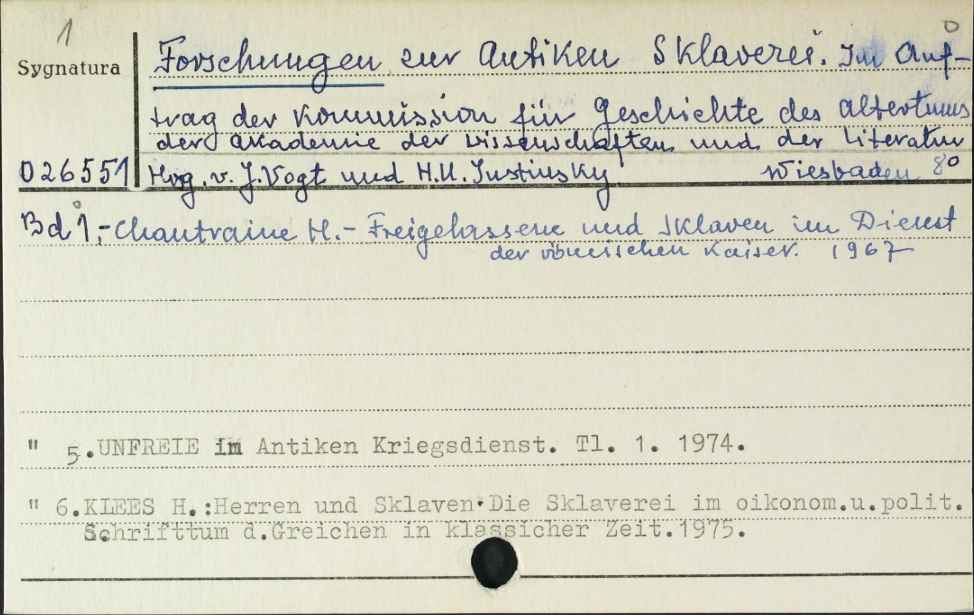 1
0
Sygnatura
Forschungen zur Antiken Sklaverei. Im Auf-
trag der Kommission für Geschichte des Altertums
der Akademie der Wissenschaften und der Literatur
026551 Hrg. v. J. Vogt und H.U. Instinsky Wiesbaden 8°
Bd 1,- Chantraine H.- Freigelassene und Sklaven im Dienst
der römischen Kaiser. 1967
" 5.UNFREIE im Antiken Kriegsdienst. Tl. 1. 1974.
" 6.KLEES H.:Herren und Sklaven.Die Sklaverei im oikonom.u.polit.
Schrifttum d.Greichen in klassicher Zeit.1975.